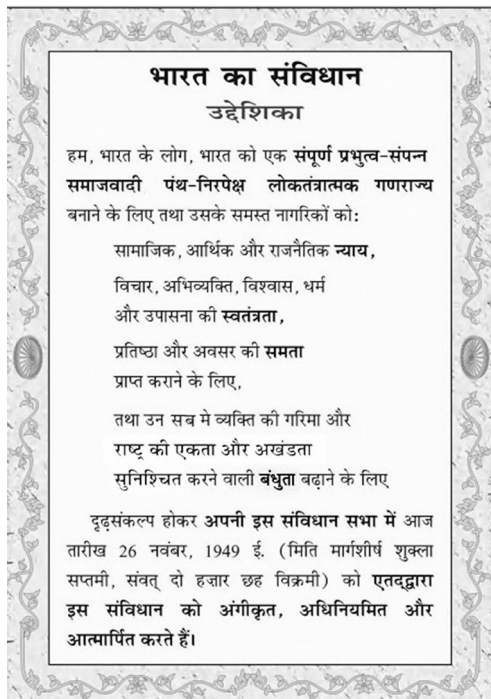 भारत का संविधान
उद्देशिका
हम, भारत के लोग, भारत को एक संपूर्ण प्रभुत्व-संपन्न
समाजवादी पंथ-निरपेक्ष लोकतंत्रात्मक गणराज्य
बनाने के लिए तथा उसके समस्त नागरिकों को:
सामाजिक, आर्थिक और राजनैतिक न्याय,
विचार, अभिव्यक्ति, विश्वास, धर्म
और उपासना की स्वतंत्रता,
प्रतिष्ठा और अवसर की समता
प्राप्त कराने के लिए,
तथा उन सब मे व्यक्ति की गरिमा और
राष्ट्र की एकता और अखंडता
सुनिश्चित करने वाली बंधुता बढ़ाने के लिए
दृढ़संकल्प होकर अपनी इस संविधान सभा में आज
तारीख 26 नवंबर, 1949 ई. (मिति मार्गशीर्ष शुक्ला
सप्तमी, संवत् दो हज़ार छह विक्रमी) को एतद्द्वारा
इस संविधान को अंगीकृत, अधिनियमित और
आत्मार्पित करते हैं।